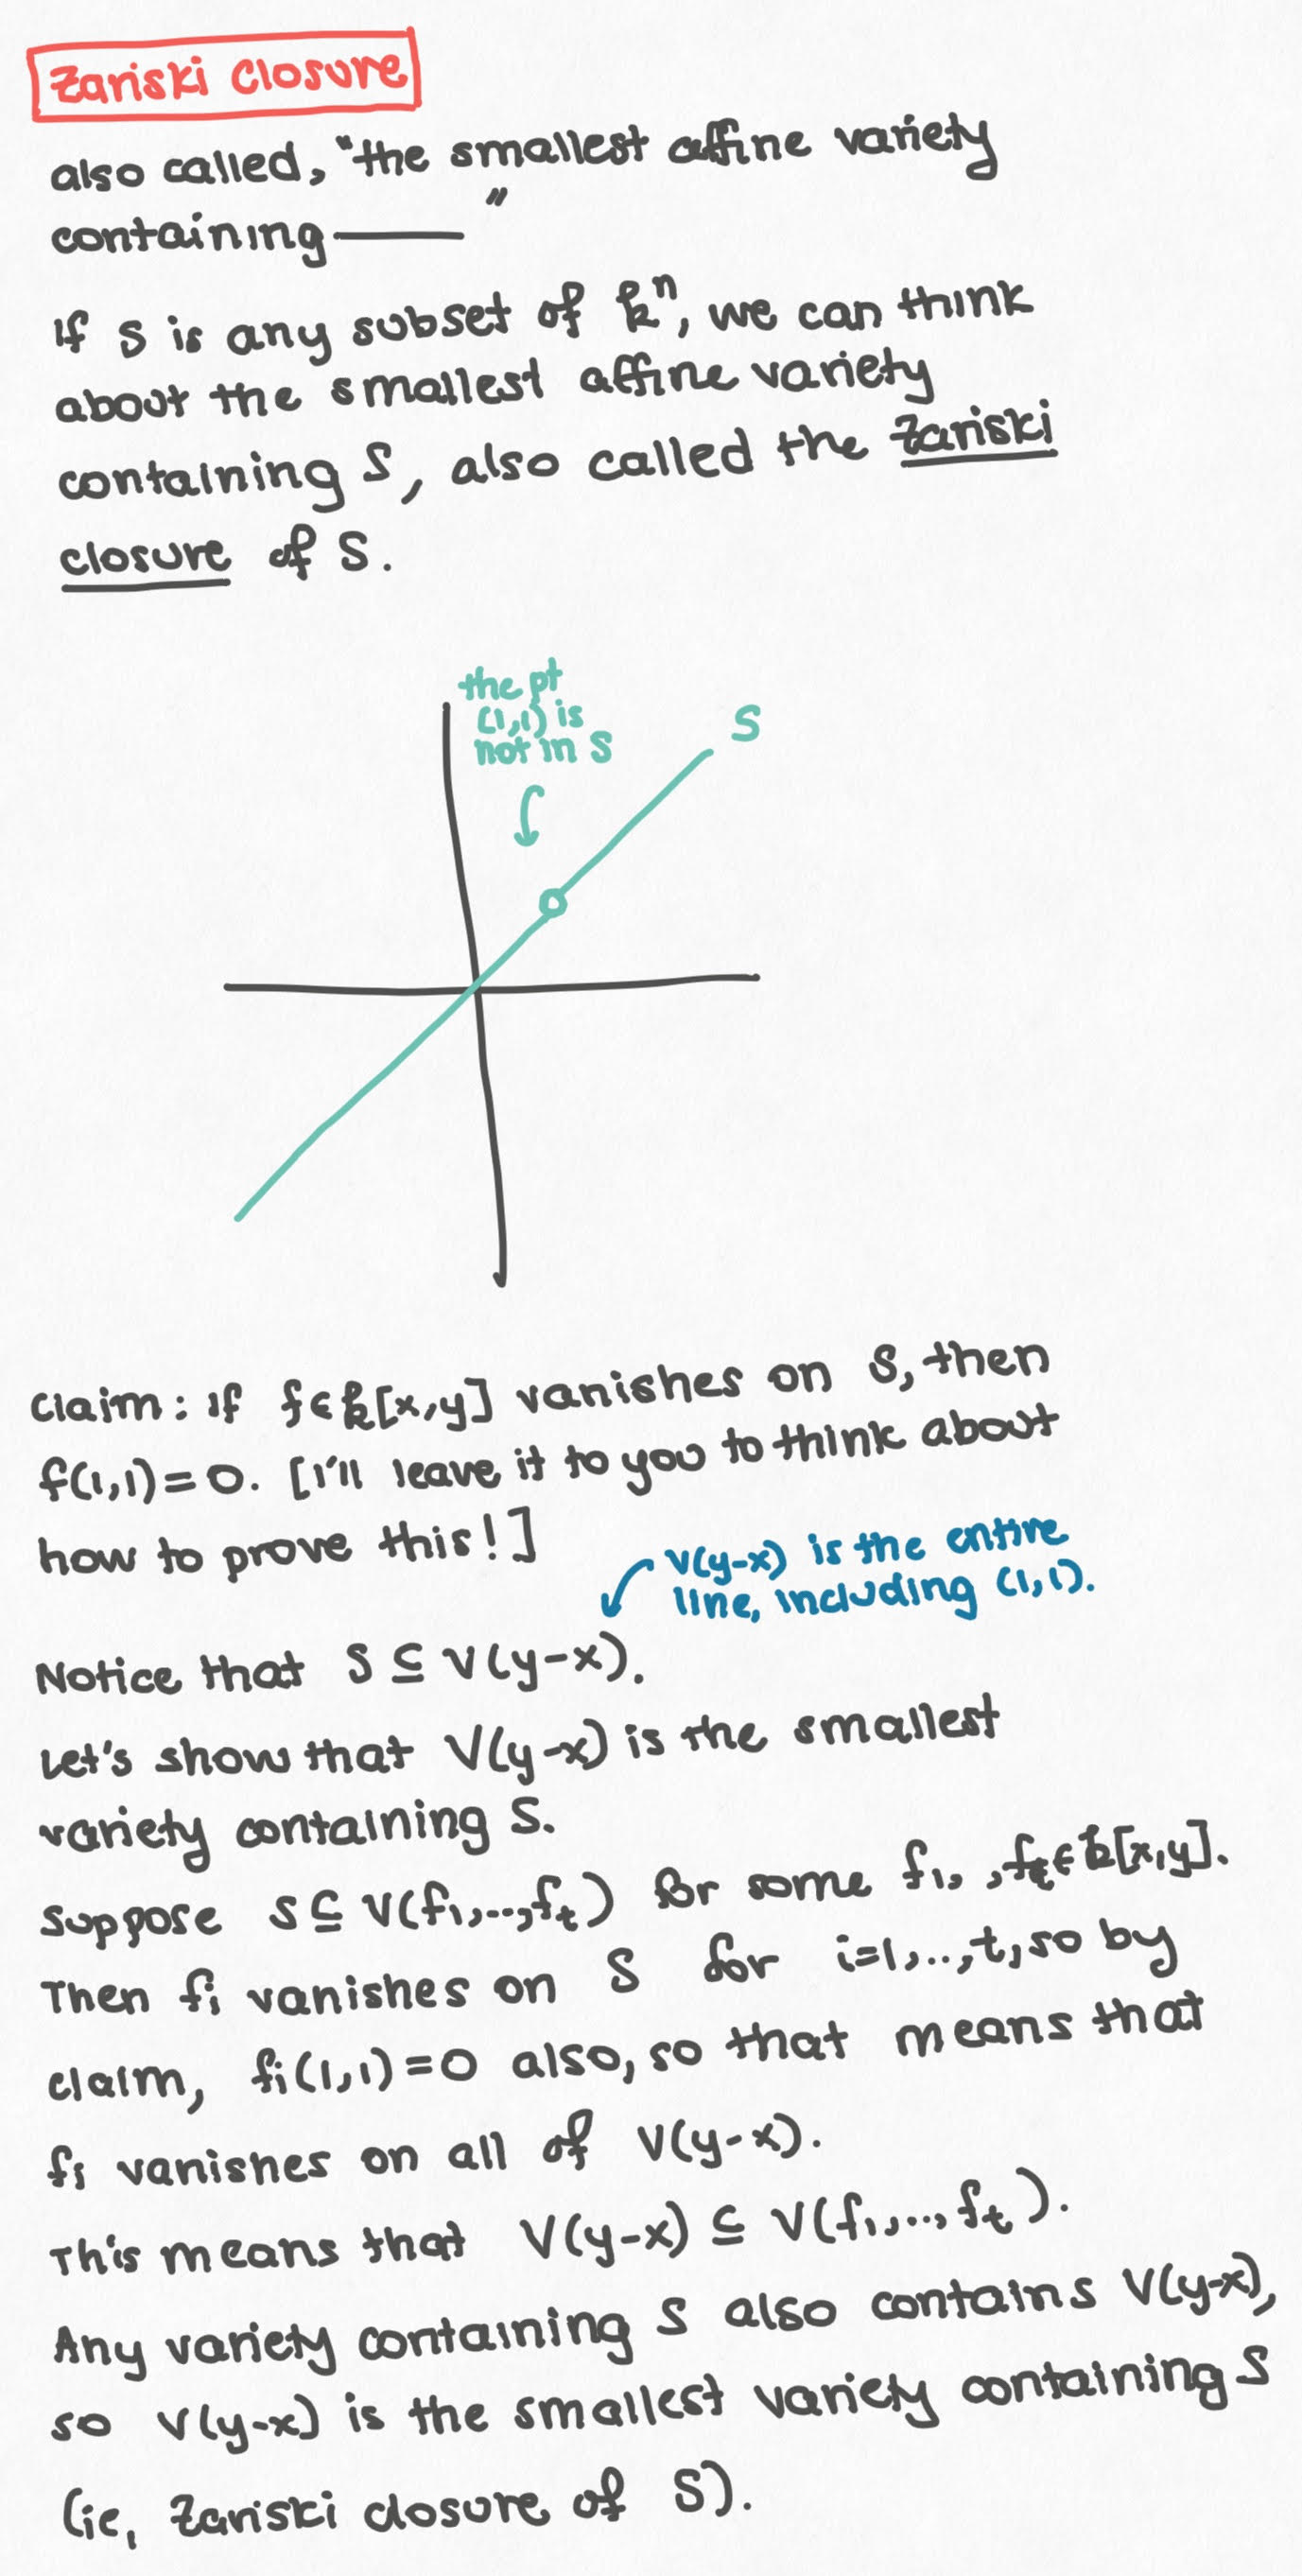 Zariski Closure
also called, "the smallest affine variety
containing ——"
If S is any subset of kⁿ, we can think
about the smallest affine variety
containing S, also called the Zariski
closure of S.
the pt
(1,1) is
not in S
S
Claim: If f∈k[x,y] vanishes on S, then
f(1,1)=0. [I'll leave it to you to think about
how to prove this!]
V(y-x) is the entire
line, including (1,1).
Notice that S ⊆ V(y-x).
Let's show that V(y-x) is the smallest
variety containing S.
Suppose S⊆V(f₁,..,fₜ) for some f₁, ,fₜ∈k[x,y].
Then fᵢ vanishes on S for i=1,..,t, so by
claim, fᵢ(1,1)=0 also, so that means that
fᵢ vanishes on all of V(y-x).
This means that V(y-x) ⊆ V(f₁,..,fₜ).
Any variety containing S also contains V(y-x),
so V(y-x) is the smallest variety containing S
(ie, Zariski closure of S).